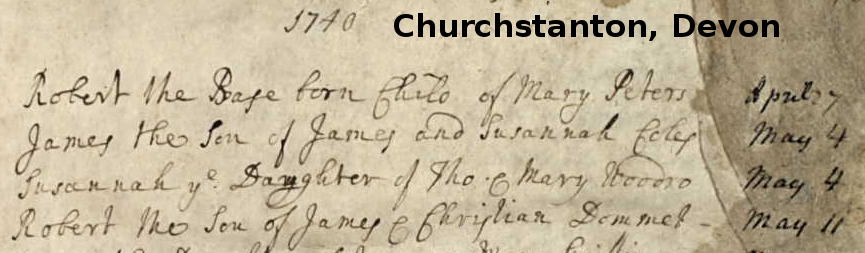 1740 Churchstanton, Devon
Robert the Base born Child of Mary Peters April 27
James the Son of James and Susannah Ecles May 4
Susannah ye Daughter of Tho. & Mary Woodro May 4
Robert the Son of James & Christian Dommet - May 11